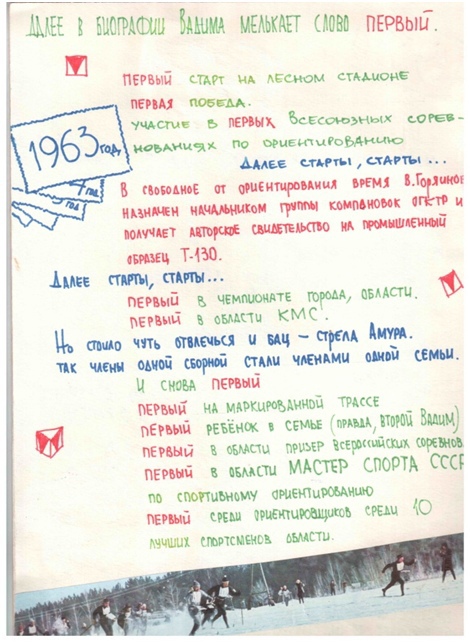 Далее в биографии Вадима мелькает слово ПЕРВЫЙ.
ПЕРВЫЙ СТАРТ НА ЛЕСНОМ СТАДИОНЕ
ПЕРВАЯ ПОБЕДА.
УЧАСТИЕ В ПЕРВЫХ ВСЕСОЮЗНЫХ СОРЕВ-
НОВАНИЯХ ПО ОРИЕНТИРОВАНИЮ
1963 год.
ДАЛЕЕ СТАРТЫ, СТАРТЫ...
год
год
В СВОБОДНОЕ ОТ ОРИЕНТИРОВАНИЯ ВРЕМЯ В.
НАЗНАЧЕН НАЧАЛЬНИКОМ ГРУППЫ КОМПАНОВОК ОГК ТР И
ПОЛУЧАЕТ АВТОРСКОЕ СВИДЕТЕЛЬСТВО НА ПРОМЫШЛЕННЫЙ
ОБРАЗЕЦ Т-130.
ДАЛЕЕ СТАРТЫ, СТАРТЫ...
ПЕРВЫЙ В ЧЕМПИОНАТЕ ГОРОДА, ОБЛАСТИ.
ПЕРВЫЙ В ОБЛАСТИ КМС.
НО СТОИЛО ЧУТЬ ОТВЛЕЧЬСЯ И БАЦ – СТРЕЛА АМУРА.
ТАК ЧЛЕНЫ ОДНОЙ СБОРНОЙ СТАЛИ ЧЛЕНАМИ ОДНОЙ СЕМЬИ.
И СНОВА ПЕРВЫЙ
ПЕРВЫЙ НА МАРКИРОВАННОЙ ТРАССЕ
ПЕРВЫЙ РЕБЁНОК В СЕМЬЕ (ПРАВДА, ВТОРОЙ ВАДИМ)
ПЕРВЫЙ В ОБЛАСТИ ПРИЗЕР ВСЕРОССИЙСКИХ СОРЕВНОВ
ПЕРВЫЙ В ОБЛАСТИ МАСТЕР СПОРТА СССР
ПО СПОРТИВНОМУ ОРИЕНТИРОВАНИЮ
ПЕРВЫЙ СРЕДИ ОРИЕНТИРОВЩИКОВ СРЕДИ 10
ЛУЧШИХ СПОРТСМЕНОВ ОБЛАСТИ.